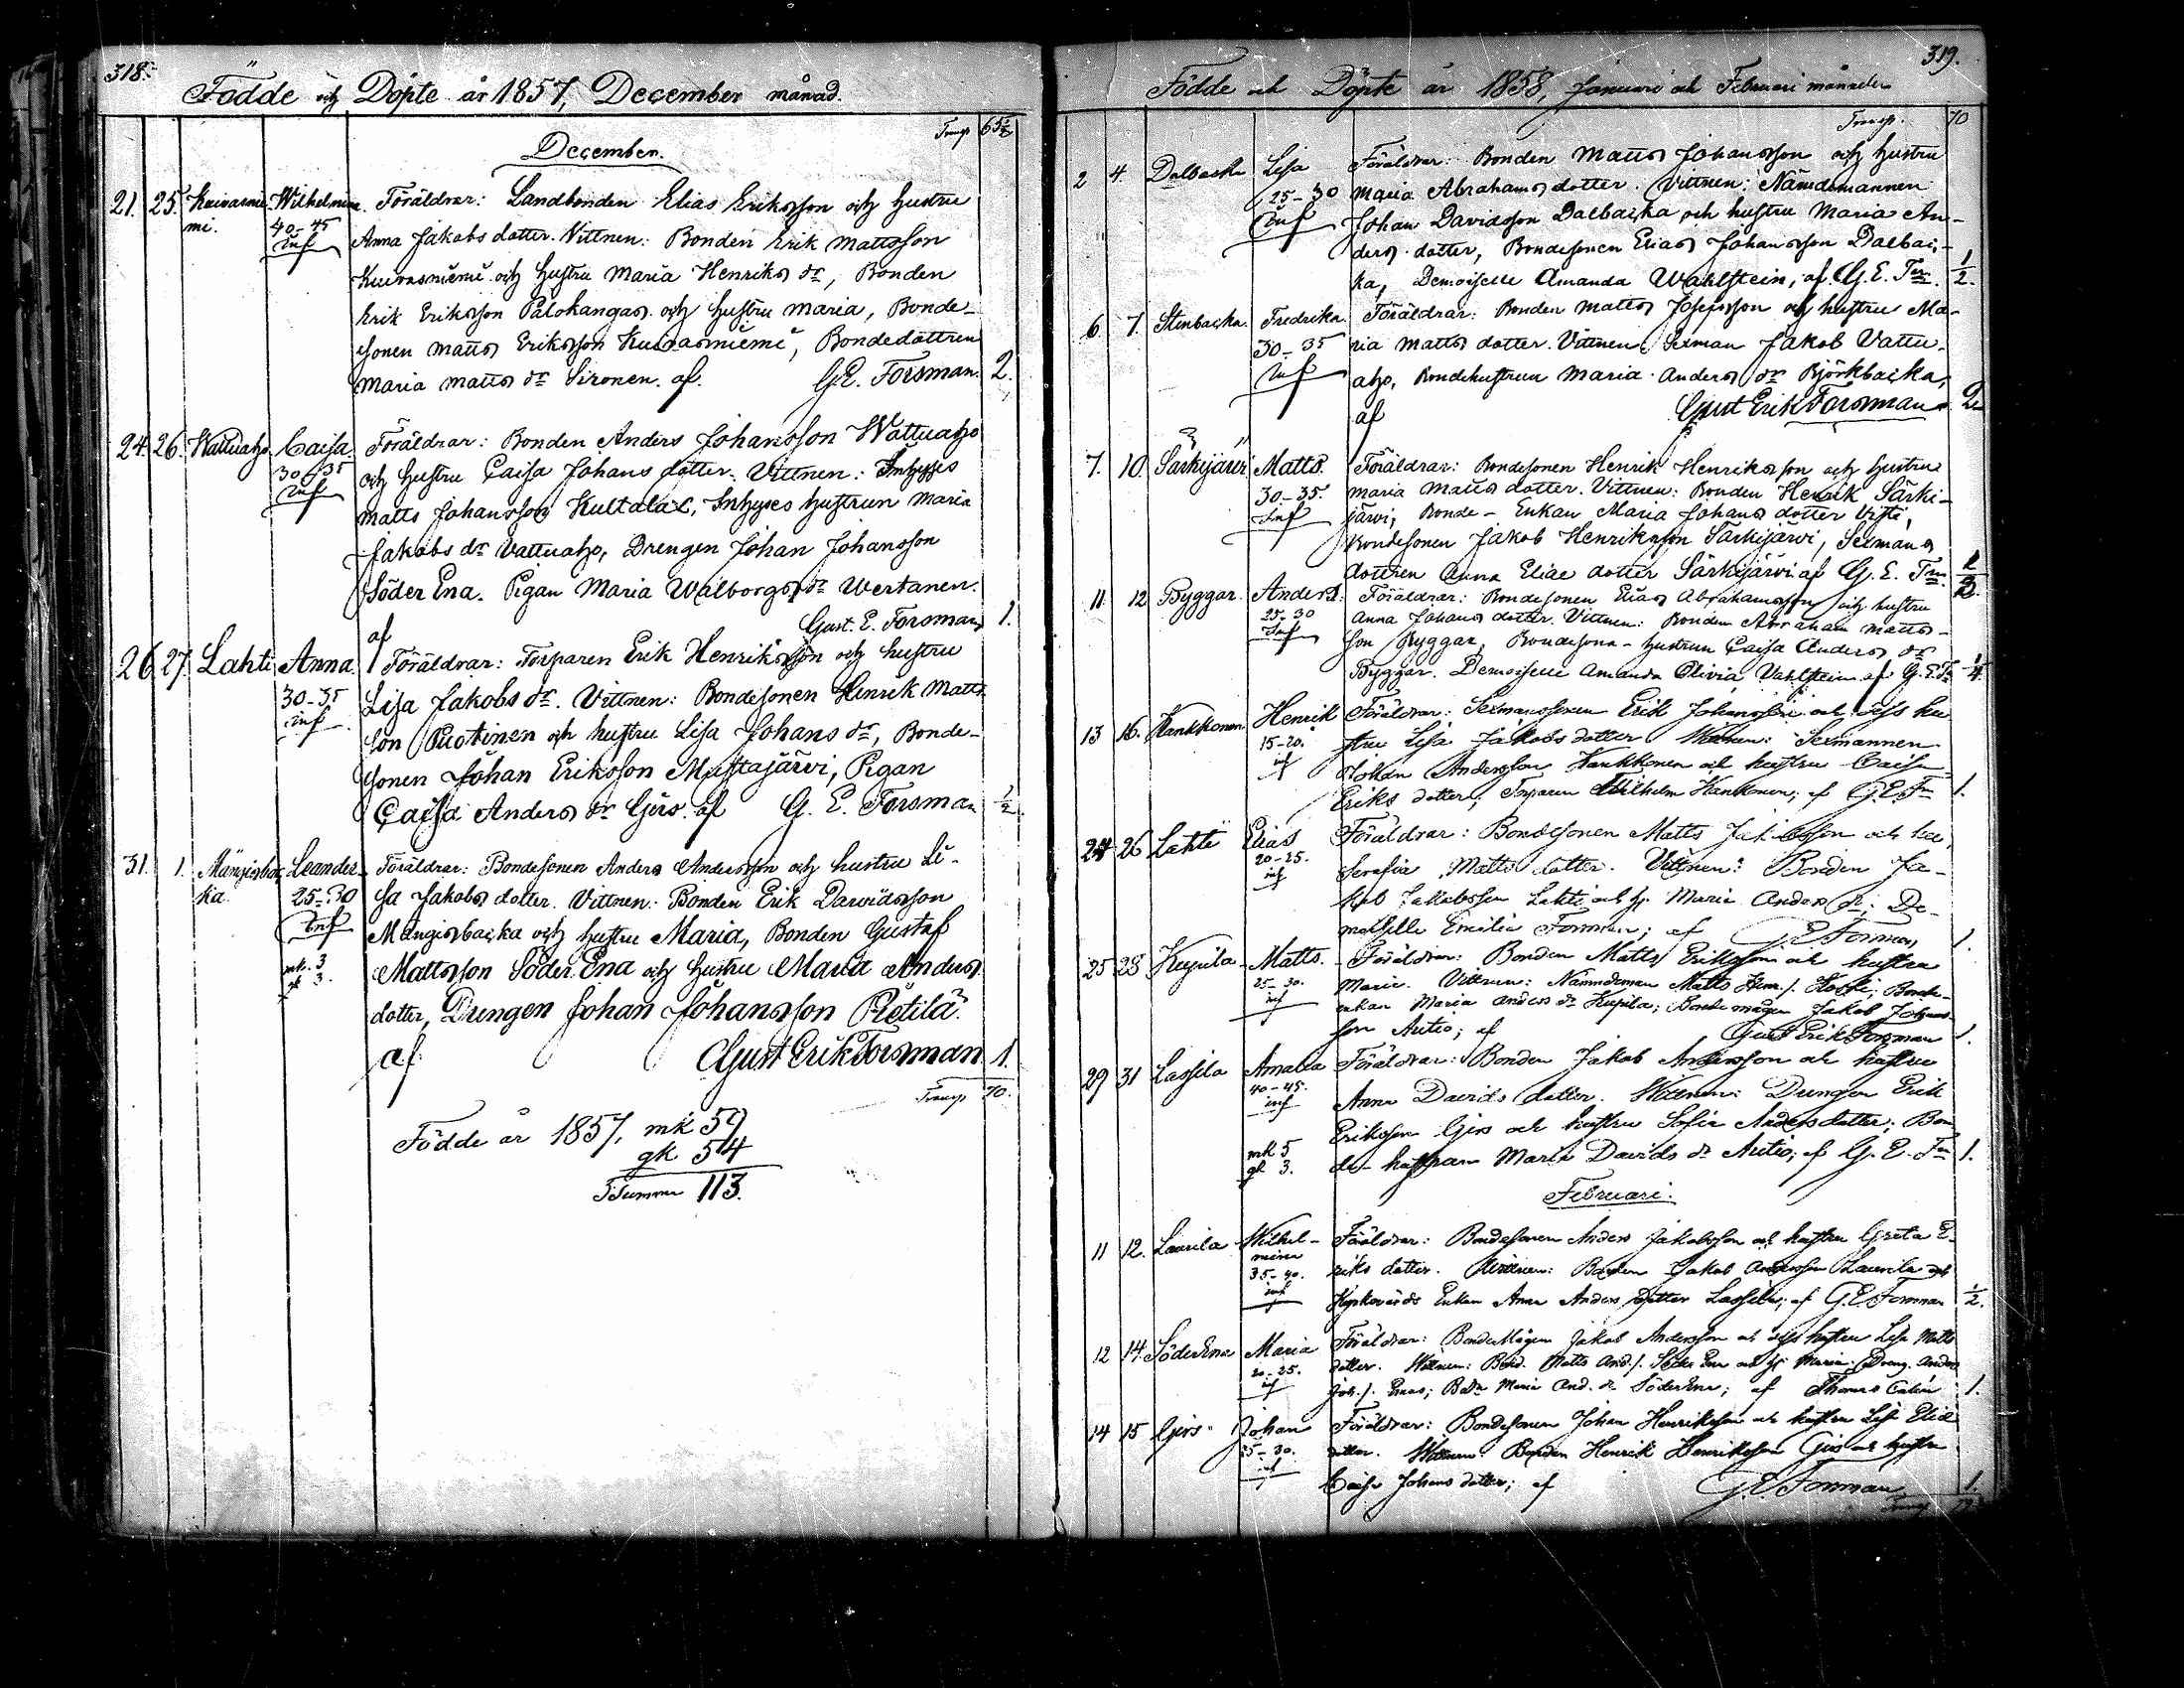 318.
Födde och Döpte år 1857, December månad.
Transp 65 1/2
December.
21. 25. Kuivasnie- Wilhelmina. Föräldrar: Landbonden Elias Eriksson och hustru
mi. 40-45 Anna Jakobs dotter. Vittnen: Bonden Erik Mattsson
inf Kuivasniemi och hustru Maria Henriks dr, Bonden
Erik Eriksson Palokangas och hustru Maria, Bonde-
sonen Matts Eriksson Kuivasniemi, Bondedottren
Maria Matts dr Sironen. af G.E. Forsman. 2.
24. 26. Wattuaho. Caisa. Föräldrar: Bonden Anders Johansson Wattuaho
30-35 och hustru Caisa Johans dotter. Vittnen: Inhyses
inf Matts Johansson Kultalax, Inhyses hustrun Maria
Jakobs dr Vattuaho, Drengen Johan Johansson
Söder Ena. Pigan Maria Walborgs dr Wertanen.
af Gust. E. Forsman 1.
26 27. Lahti Anna. Föräldrar: Torparen Erik Henriksson och hustru
30-35 Lisa Jakobs dr. Vittnen: Bondesonen Henrik Matts-
inf son Puotinen och hustru Lisa Johans dr, Bonde-
sonen Johan Eriksson Mustajärvi, Pigan
Caisa Anders dr Girs. af G. E. Forsman 1/2
31. 1. Mängisbac- Leander Föräldrar: Bondesonen Anders Andersson och hustru Li-
ka. 25-30 sa Jakobs dotter. Vittnen: Bonden Erik Davidsson
inf Mängisbacka och hustru Maria, Bonden Gustaf
mk. 3 Mattsson Söder Ena och hustru Maria Anders
qk 3. dotter, Drengen Johan Johansson Pietilä.
af Gust Erik Forsman 1.
Transp 70.
Födde år 1857, mk 59
qk 54
Summa 113.
319.
Födde och Döpte år 1858, Januari och Februari månader
Transp. 70
2 4. Dalbacka Lisa Föräldrar: Bonden Matts Johansson och hustru
25-30 Maria Abrahams dotter. Vittnen: Nämdemannen
inf Johan Davidsson Dalbacka och hustru Maria An-
ders dotter, Bondesonen Elias Johansson Dalbac-
ka, Demoiselle Amanda Wahlstein, af G. E. Fsn. 1/2.
6 7. Stenbacka. Fredrika. Föräldrar: Bonden Matts Josefsson och hustru Ma-
30-35 ria Matts dotter. Vittnen: Sexman Jakob Vattu-
inf aho, Bondehustrun Maria Anders dr Björkbacka,
af Gust Erik Forsman 2
7. 10. Särkijärvi Matts. Föräldrar: Bondesonen Henrik Henriksson och hustru
30-35. Maria Matts dotter. Vittnen: Bonden Henrik Särki-
inf järvi, Bonde-Enkan Maria Johans dotter
Bondesonen Jakob Henriksson Särkijärvi, Sexmans
dottren Anna Eliae dotter Särkijärvi af G. E. Fsn. 1/2.
11. 12 Byggar. Anders. Föräldrar: Bondesonen Elias Abrahamsson och hustru
25-30 Anna Johans dotter. Vittnen: Bonden Abraham Matts-
inf son Byggar, Bondesons-hustrun Caisa Anders dr
Byggar. Demoiselle Amanda Olivia Vahlstein af G. E. Fn 1/4
13 16. Kankkonen Henrik Föräldrar: Sexmanssonen Erik Johansson och dess hu
15-20. stru Lisa Jakobs dotter Wittnen: Sexmannen
inf Johan Andersson Kankkonen och hustru Caisa
Eriks dotter; Torparen Wilhelm Kankkonen; af G.E. Fsn 1.
24 26 Lahti Elias Föräldrar: Bondesonen Matts Jakobsson och hu
20-25. Serafia Matts dotter. Vittnen: Bonden Ja-
inf kob Jakobsson Lahti och h. Maria Anders dr; De-
moiselle Emilia Forsman; af G. E. Forsman 1.
25 28 Kujula Matts. Föräldrar: Bonden Matts Eriksson och hustru
25-30. Maria. Vittnen: Nämndeman Matts Henr. s. Kotti; Bonde-
inf enkan Maria Anders dr Kujula; Bondemågen Jakob Johans-
son Autio; af Gust Erik Forsman 1.
29 31 Lassila Amalia Föräldrar: Bonden Jakob Andersson och hustru
40-45. Anna Davids dotter. Wittnen: Drengen Erik
inf Eriksson Girs och hustru Sofia Anders dotter; Bon
mk 5 de-hustrun Maria Davids dr Autio; af G. E. Fsn 1.
qk 3.
Februari.
11 12. Laurila Wilhel- Föräldrar: Bondesonen Anders Jakobsson och hustru Greta E-
mina riks dotter. Wittnen: Bonden Jakob Andersson Laurila och
35-40. Kyrkovärds Enkan Anna Anders dotter Lassila; af G. E. Forsman 1/2.
inf
12 14. Söder Ena Maria Föräldrar: Bondemågen Jakob Andersson och dess hustru Lisa Matts
20-25. dotter. Wittnen: Bond. Matts And. s. Söder Ena och h. Maria; Dreng. Anders
inf Joh. s. Enas; Bdr Maria And. dr Söder Ena; af Thomas 1.
14 15 Girs Johan Föräldrar: Bondesonen Johan Henriksson och hustru Lisa Eliæ
25-30. dotter. Wittnen: Bonden Henrik Henriksson Girs och hustru
inf Caisa Johans dotter; af G. E. Forsman 1.
Transp